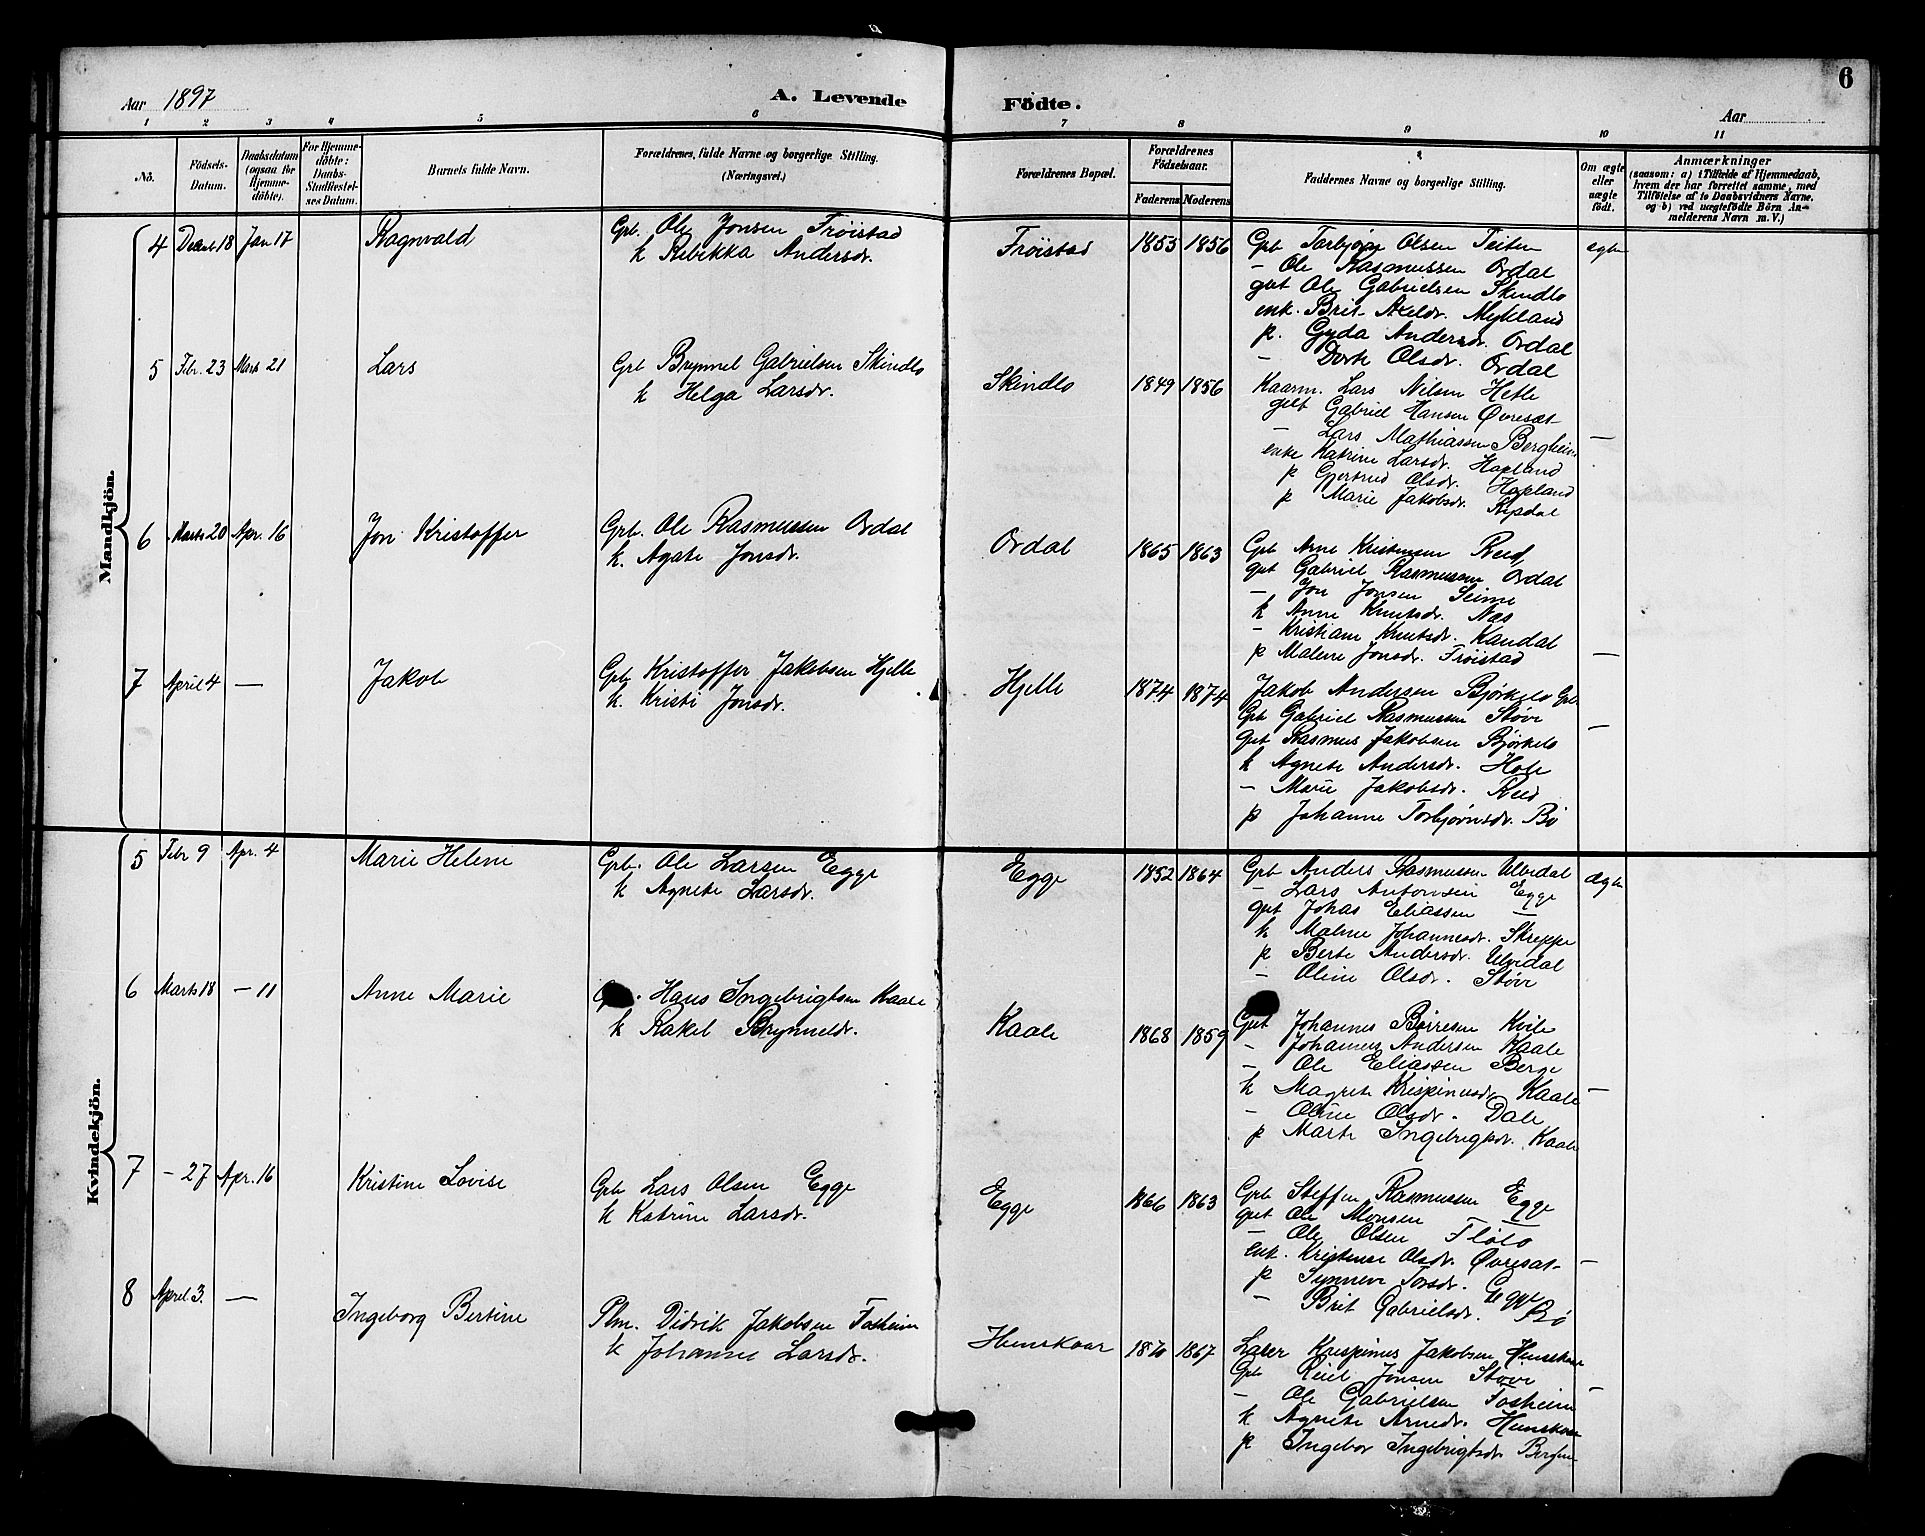 6
Aar 1897
A. Levende Födte.
Aar
1 2 3 4 5 6 7 8 9 10 11
No.
Födsels-Datum.
Daabsdatum (ogsaa for Hjemme-döbte).
For Hjemme-döbte: Daabs-Stadfæstel-ses Datum.
Barnets fulde Navn.
Forældrenes, fulde Navne og borgerlige Stilling. (Næringsvei.)
Forældrenes Bopæl.
Forældrenes Födselsaar.
Faderens Moderens
Faddernes Navne og borgerlige Stilling.
Om ægte eller uægte födt.
Anmærkninger
(saasom: a) i Tilfælde af Hjemmedaab, hvem der har forrettet samme, med Tilföielse af to Daabsvidners Navne. og b) ved uægtefödte Börn An-melderens Navn m. V.)
Mandkjön.
4 Decbr. 18 Jan 17 Ragnvald
Grb. Ole Jonsen Frøistad
k Rebekka Andersdr.
Frøistad 1853 1856
Grb Torbjørn Olsen Teiten
- Ole Rasmussen Ordal
gut Ole Gabrielsen Skindlo
enk. Brit Axeldr. Mykland
p. Gyda Andersdr. Ordal
- Dorte Olsdr. Ordal
egte
5 Febr. 23 Marts 21 Lars
Grb Brynnel Gabrielsen Skindlo
k Helga Larsdr.
Skindlo 1849 1856
Kaarm. Lars Nilsen Hetle
gift Gabriel Hansen Øvreset
- Lars Mathiassen Bergheim
enke Katrine Larsdr. Hopland
p Gjertrud Olsdr. Hopland
p Marie Jakobsdr. Ripdal
—
6 Marts 20 Apr. 16 Jon Kristoffer
Grb. Ole Rasmussen Ordal
k. Agate Jonsdr.
Ordal 1865 1863
Grb Arne Kristensen Reed
gut Gabriel Rasmussen Ordal
- Jon Jonsen Seime
k Anne Knutsdr. Nes
- Kristiane Knutsdr. Kandal
p Malene Jonsdr. Frøistad
—
7 April 4 — Jakob
Grb Kristoffer Jakobsen Hjelle
k. Kristi Jonsdr.
Hjelle 1874 1874
Jakob Andersen Bjørkelo Grb
Grb Gabriel Rasmussen Støve
gut Rasmus Jakobsen Bjørkelo
k Agnete Andersdr. Hole
- Marie Jakobsdr. Reed
p Johanne Torbjørnsdr. Bø
—
Kvindekjön.
5 Febr 9 Apr. 4 Marie Helene
Grb. Ole Larsen Egge
k Agnete Larsdr.
Egge 1852 1864
Grb Anders Rasmussen Ulvedal
- Lars Antonsen Egge
gut Johas Eliassen —
k Malene Johannesdr. Skreppe
p Berte Andersdr. Ulvedal
- Oline Olsdr. Støve
ægte
6 Marts 18 - 11 Anne Marie
Hans Ingebrigtsen Kaale
k Rakel Brynneldr.
Kaale 1868 1859
Gut Johannes Børresen Kvile
- Johannes Andersen Kaale
- Ole Eliassen Berge
k Magrete Krispinusdr Kaale
- Oline Olsdr. Dale
p Marte Ingebrigtsdr. Kaale
—
7 - 27 Apr. 16 Kristine Lovise
Grb Lars Olsen Egge
k Katrine Larsdr.
Egge 1866 1863
Grb Steffen Rasmussen Egge
gut Ole Monsen —
- Ole Olsen Flølo
enk. Kristense Olsdr. Øvreset
p Synneve Torsdr. Egge
- Brit Gabrielsdr. Bø
—
8 April 3. — Ingeborg Bertine
Plm. Didrik Jakobsen Fosheim
k Johanne Larsdr.
Henskaar 1870 1867
Lærer Krispinus Jakobsen Henskaar
Grb Reiel Jonsen Støve
- Ole Gabrielsen Fosheim
k Agnete Arnedr. Henskaar
p Ingebor Ingebrigtsdr
—